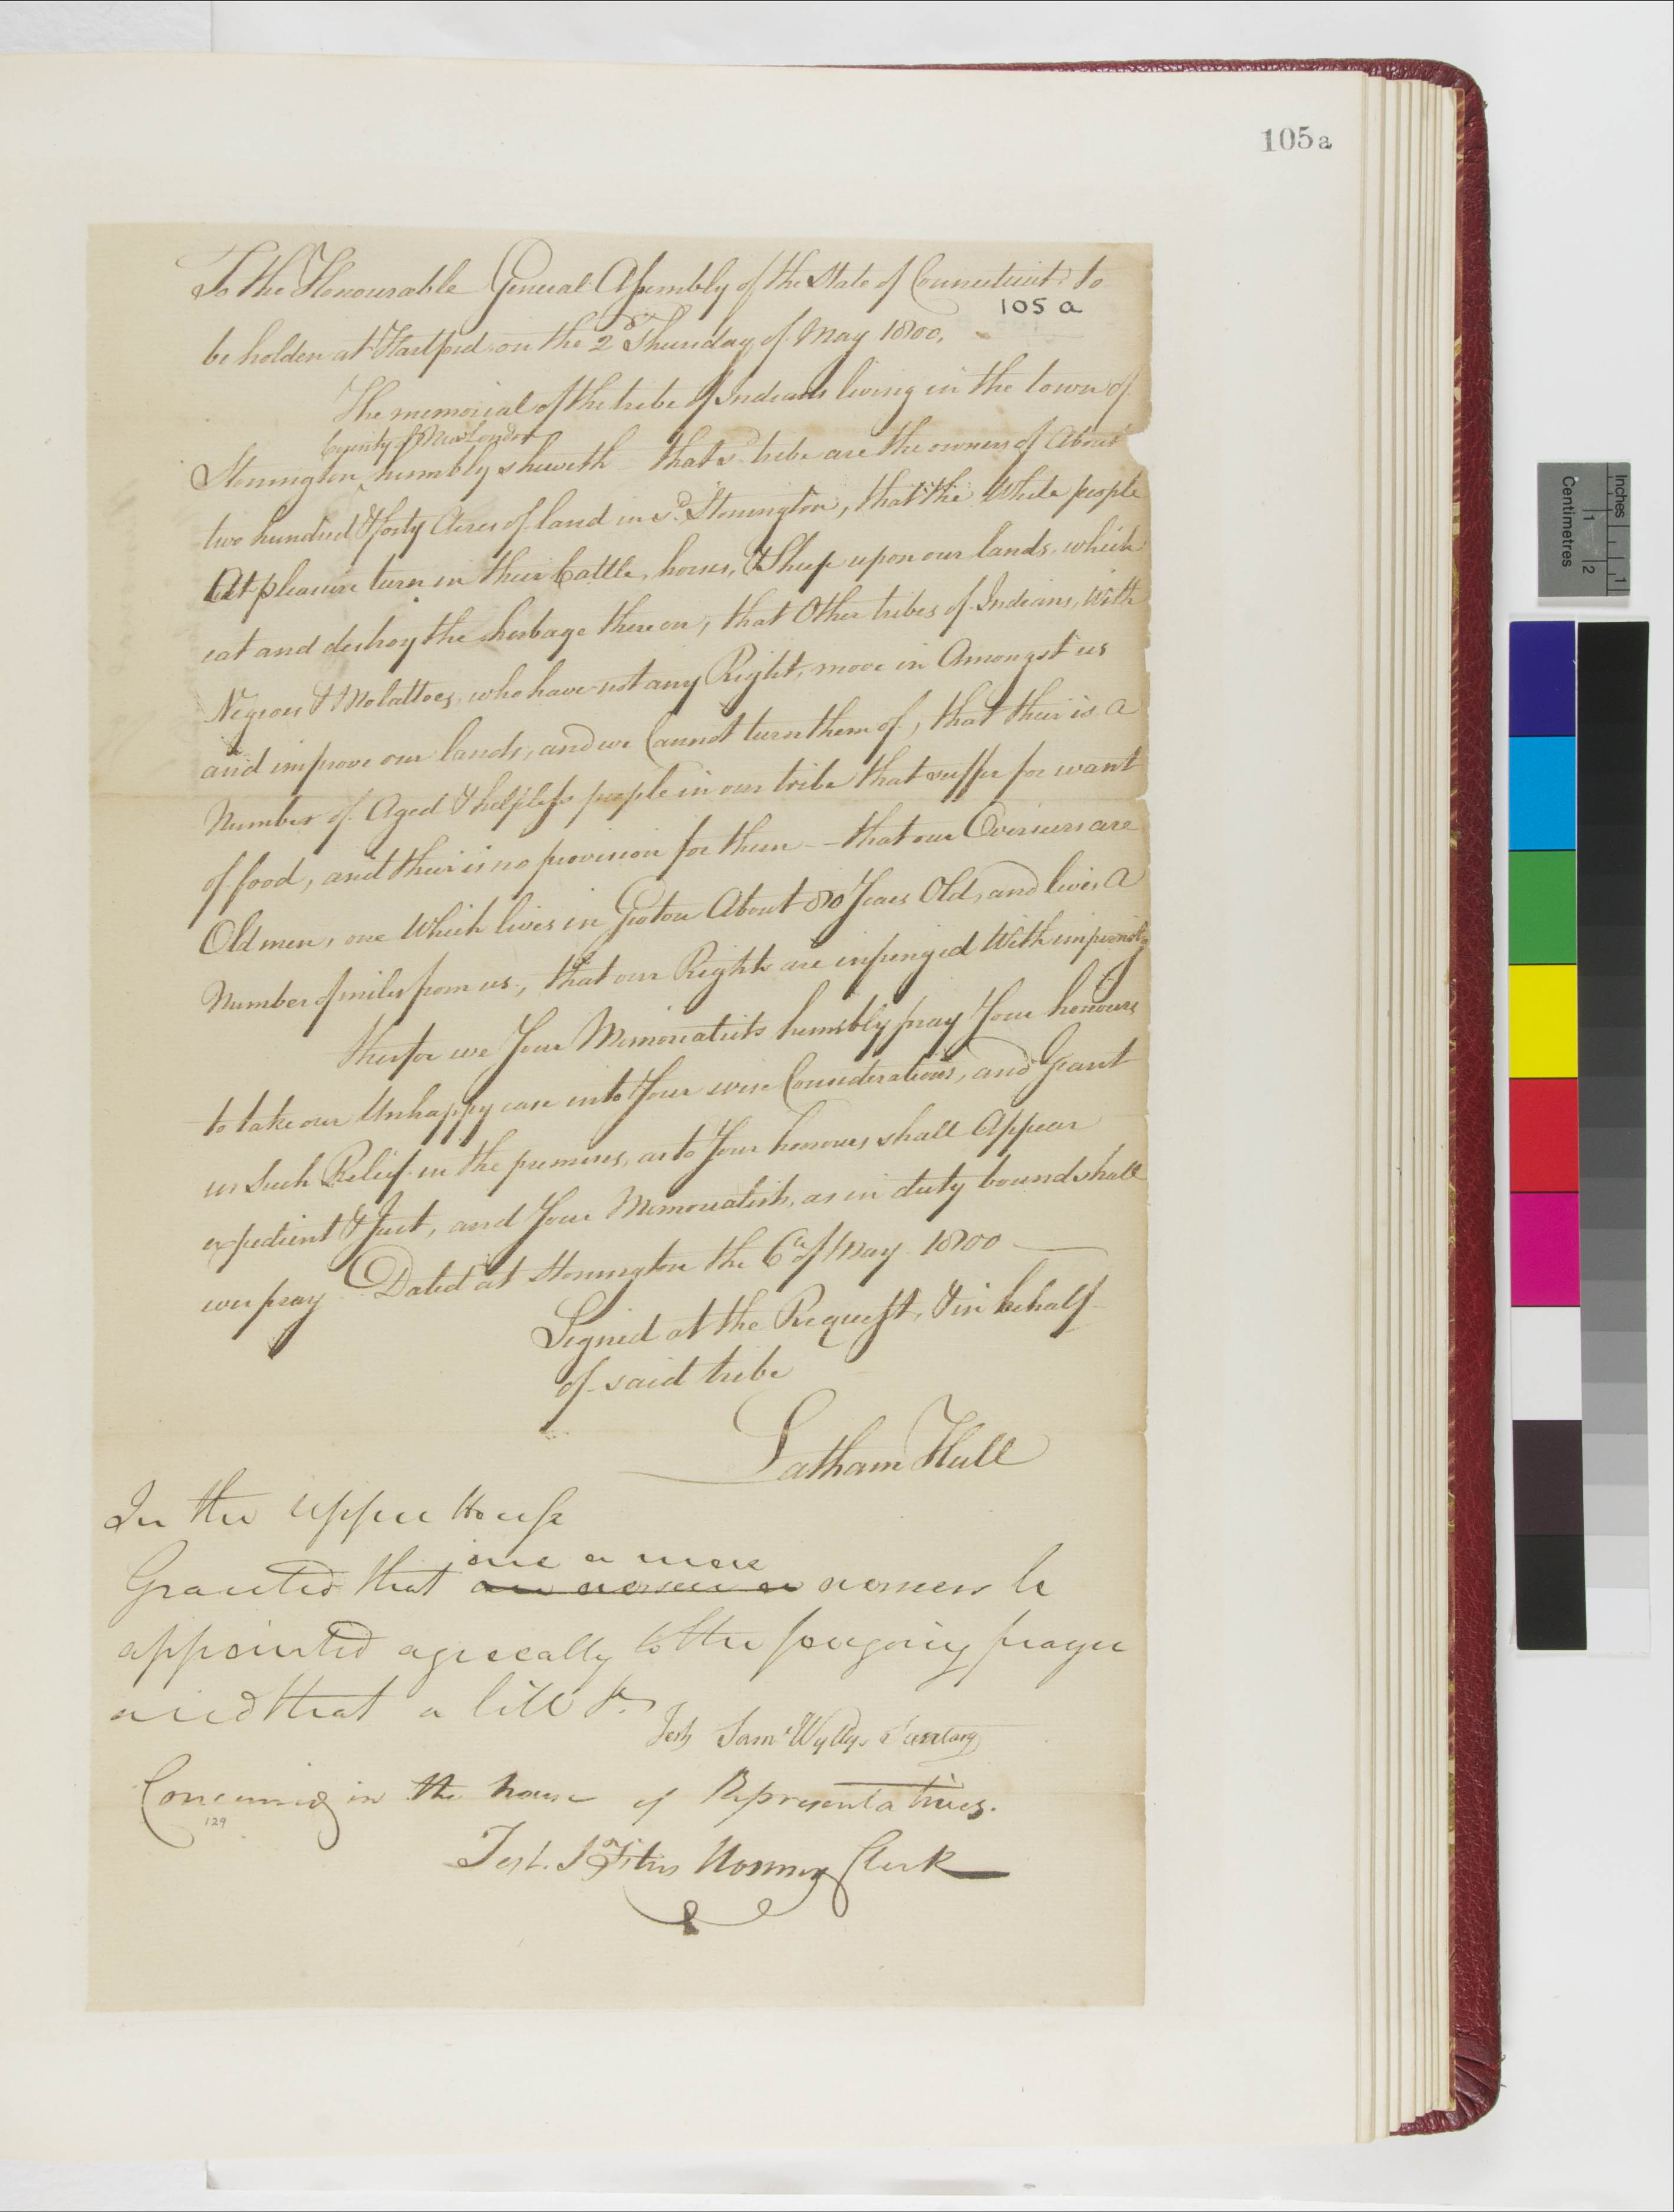 105a
To the Honourable General Assembly of the State of Connecticut to
105 a
be holden at Hartford on the 2d Thursday of May 1800,
The memorial of the tribe of Indians living in the town of
County of New London
Stonington humbly sheweth that sd tribe are the owners of About
two hundred & forty Acres of land in sd Stonington, that the White people
At pleasure turn in their Cattle, horses, & Sheep upon our lands, which
eat and destroy the herbage thereon, that Other tribes of Indians, With
Negroes & Molattoes, who have not any Right, move in Amongst us
and improve our lands, and we Cannot turn them of, that their is a
Number of Aged & helpless people in our tribe that suffer for want
of food, and their is no provision for them – that our Overseers are
Old men, one Which lives in Groton About 80 Years Old, and lives a
Number of miles from us, that our Rights are infringed With impunity
therfor we Your Memorialists humbly pray Your honours
to take our Unhappy case into Your wise Considerations, and Grant
us Such Relief in the premises, as to Your honours shall Appear
expedient & Just, and Your Memorialists, as in duty bound shall
ever pray Dated at Stonington the 6th of May 1800
Signed at the Request, & in behalf
of said tribe
Latham Hull
In the upper House
one or more
Granted that an overseer or overseers be
appointed agreeably to the foregoing prayer
and that a bill &c
Test Saml Wyllys Secretary
Concurred in the house of Representatives.
129
Test. Titus Hosmer Clerk
Inches
Centimetres
1
1
2